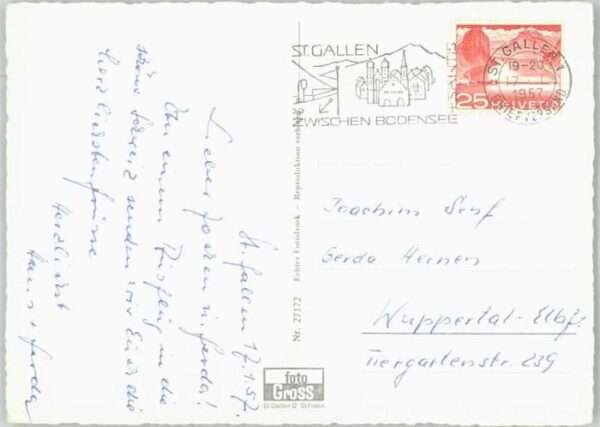 St. Gallen 17.1.57.
Lieber Joachim u. Gerda!
Von einem Ausflug in die
schöne Schweiz senden wir Euch die
herzlichsten Grüsse
Herzlichst
Hans + Gerda
Nr. 27172 Echter Fotodruck - Reproduktion verboten
foto
Gross
St.Gallen
ST.GALLEN
SÄNTIS
ZWISCHEN BODENSEE
ST. GALLEN 1
19-20
17. 1.
1957
BRIEFVERSAND
25 HELVETIA
Joachim Senf
Gerda Heinen
Wuppertal-Elbf.
Tiergartenstr. 239